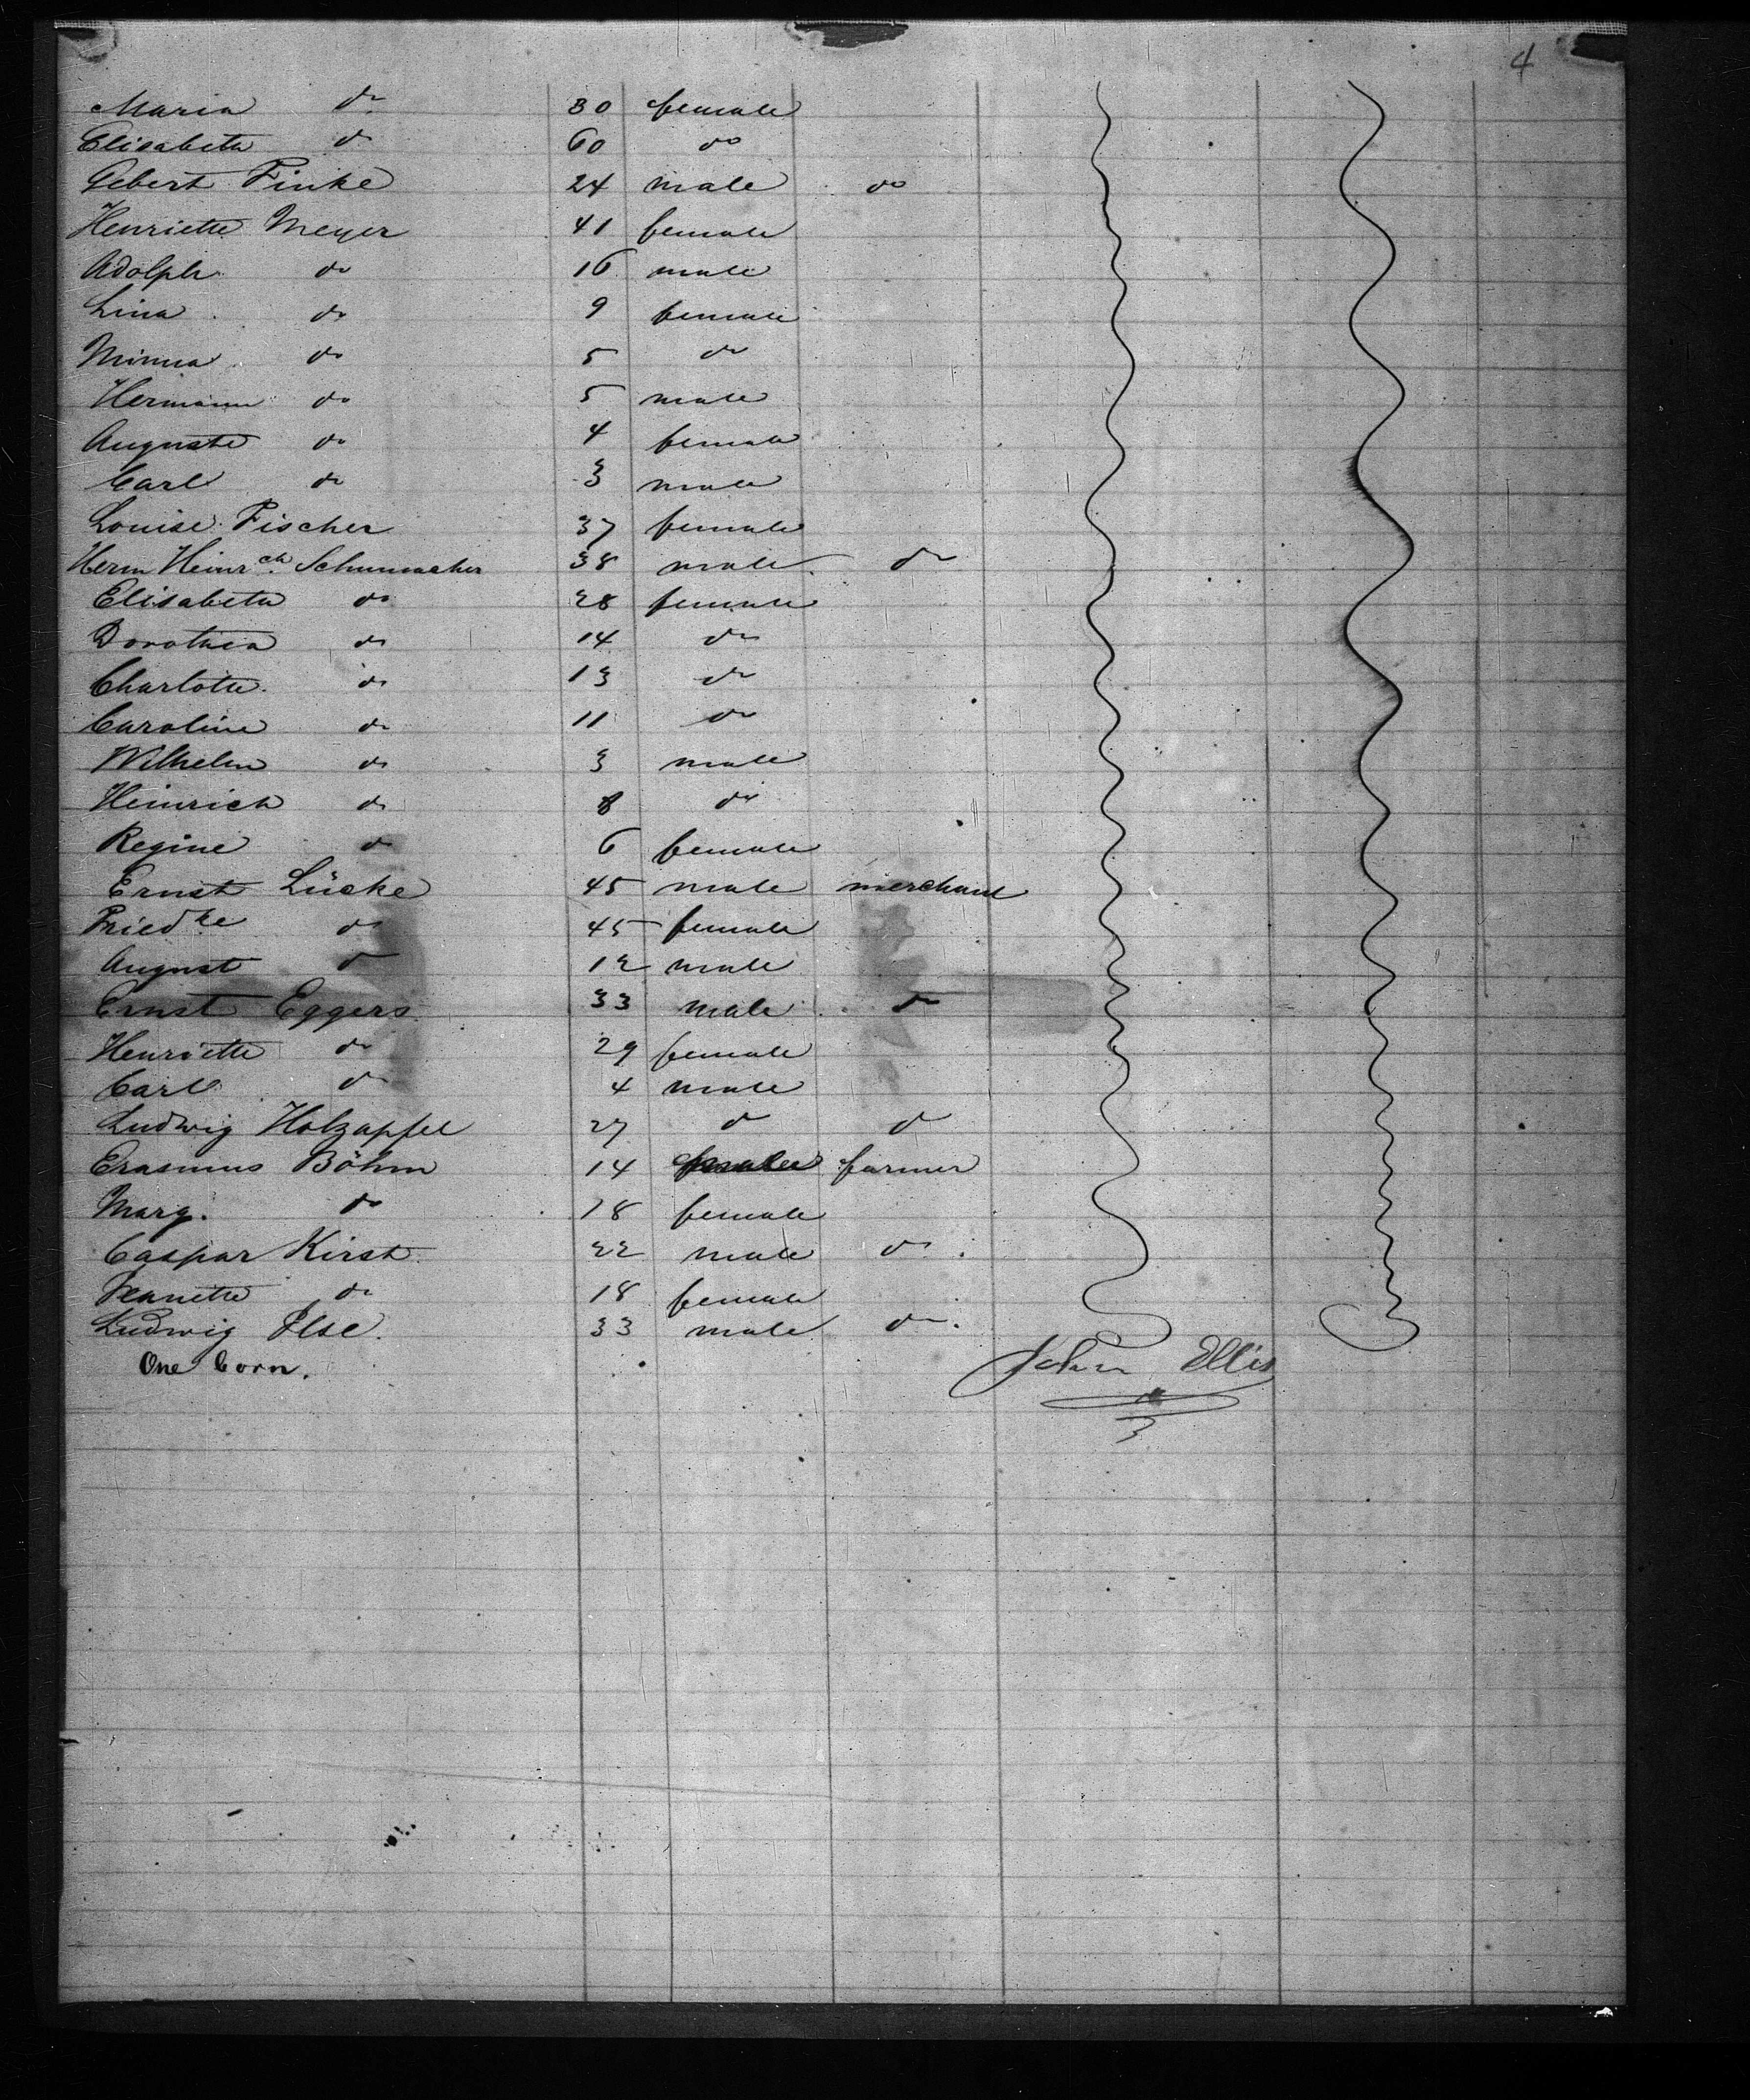 4
Maria do 30 female
Elisabeth do 60 do
Gebert Finke 24 male do
Henriette Meyer 41 female
Adolph do 16 male
Lina do 9 female
Minna do 5 do
Hermann do 5 male
Auguste do 4 female
Carl do 3 male
Louise Fischer 37 female
Herm Heinrch Schumacher 38 male do
Elisabeth do 28 female
Dorothea do 14 do
Charlotte do 13 do
Caroline do 11 do
Wilhelm do 3 male
Heinrich do 8 do
Regine do 6 female
Ernst Lücke 45 male merchant
Friedke do 45 female
August do 12 male
Ernst Eggers 33 male do
Henriette do 29 female
Carl do 4 male
Ludwig Holzapfel 27 do do
Erasmus Böhm 14 farmer
Marg. do 18 female
Caspar Kirst 22 male do.
Nanette do 18 female
Ludwig Ilse. 33 male do.
One born.
John Ellis